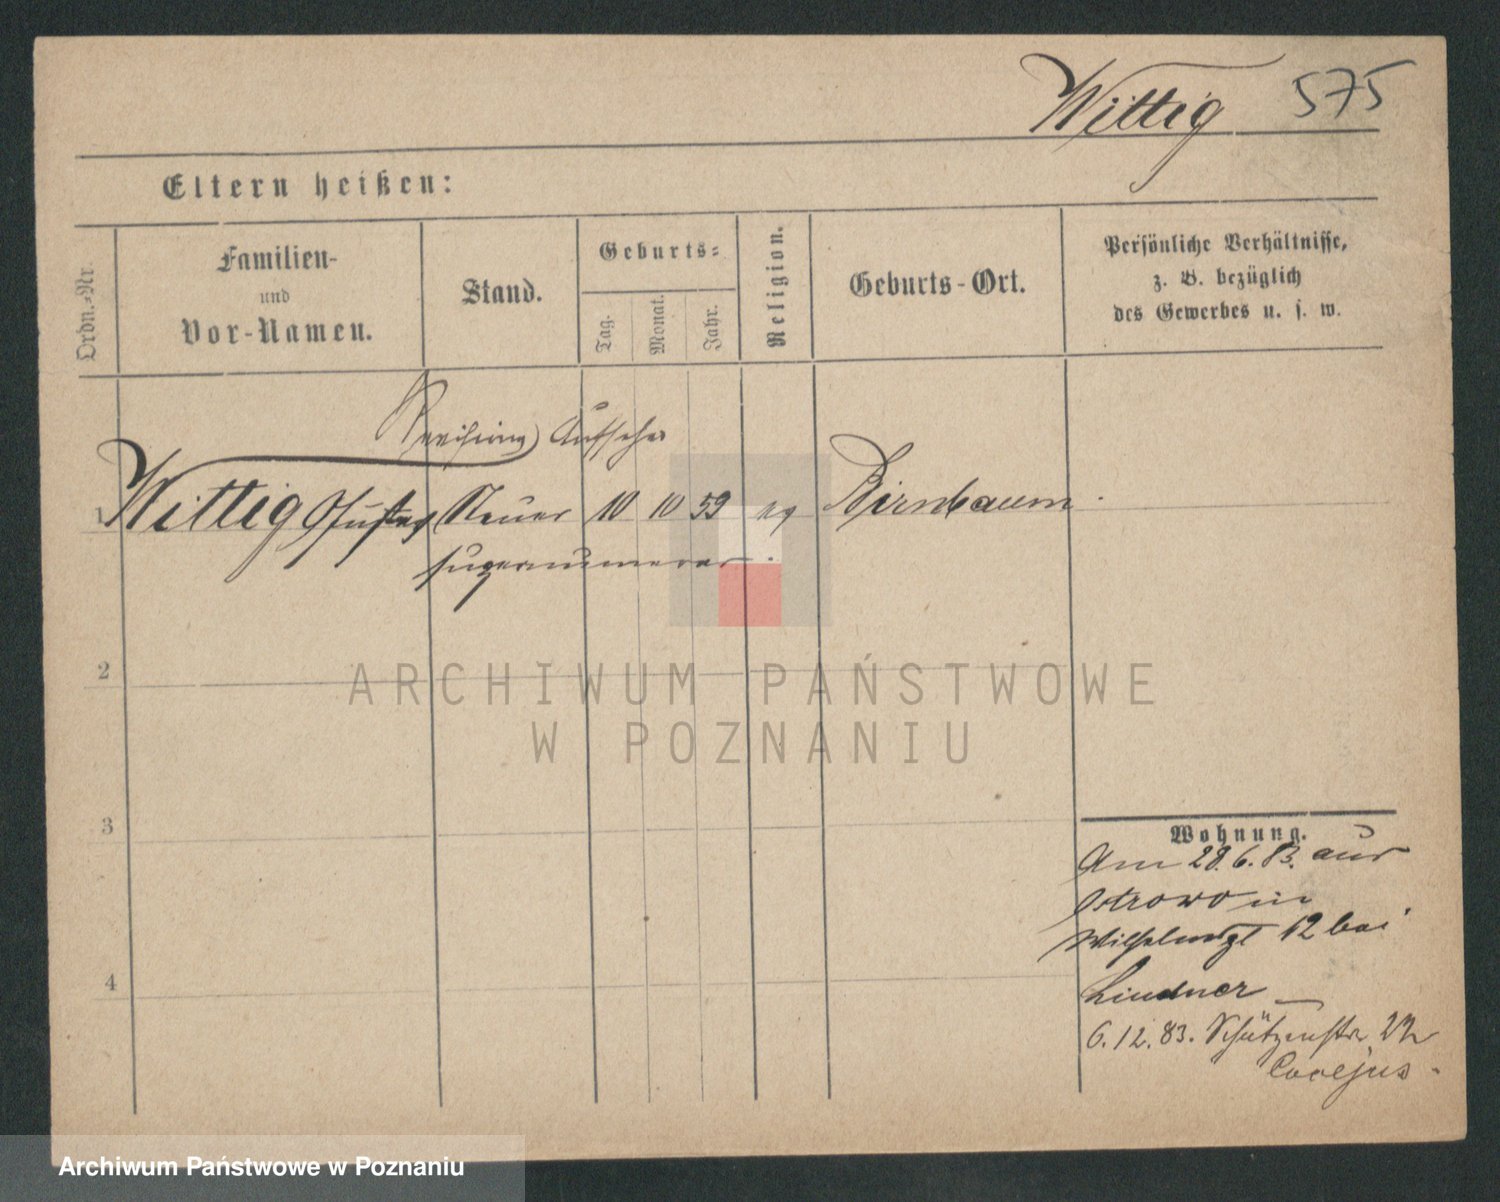 Wittig 575
Eltern heißen:
Ordn.-Nr.
Familien-
und
Vor-Namen.
Stand.
Geburts-
Tag.
Monat.
Jahr.
Religion.
Geburts-Ort.
Persönliche Verhältnisse,
z. B. bezüglich
des Gewerbes u. s. w.
Aufseher
1 Wittig Gustav Steuer 10 10 59 ev Birnbaum.
supernumerar.
2
3
4
Wohnung.
Am 28.6.83. aus
Ostrowo in
Wilhelmspl 12 bei
Lindner
6.12.83. Schützenstr
ARCHIWUM PAŃSTWOWE
W POZNANIU
Archiwum Państwowe w Poznaniu